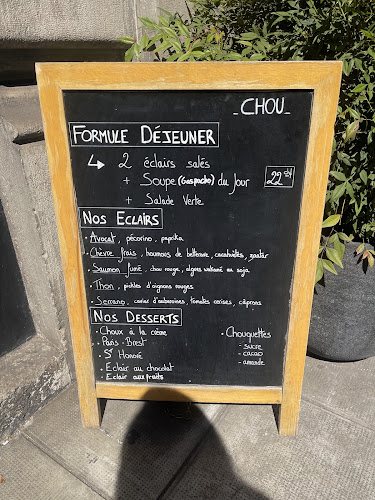 _CHOU_
FORMULE DÉJEUNER
2 éclairs salés
+ Soupe (Gaspacho) du jour
22
+ Salade Verte
NOS ECLAIRS
· Avocat, pécorino, paprika
· Chèvre frais, houmous de betterave, cacahuètes, zaatar
· Saumon fumé, chou rouge, algues wakamé au soja
· Thon, pickles d'oignons rouges
· Serrano, caviar d'aubergines, tomates cerises, câprons
NOS DESSERTS
· Choux à la crème
· Paris-Brest
· St Honoré
· Eclair au chocolat
· Eclair aux fruits
· Chouquettes
- sucre
- cacao
- amande